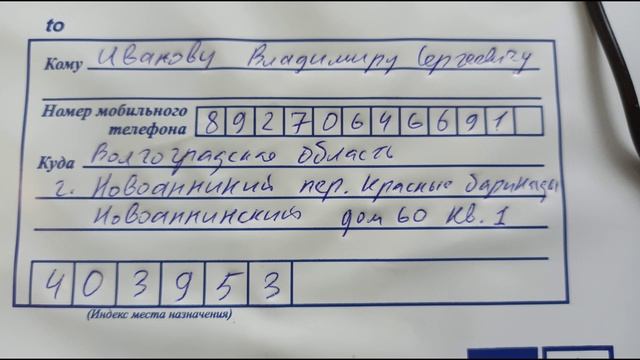 to
Кому Иванову Владимиру Сергеевичу
Номер мобильного
телефона 89270646691
Куда Волгоградская область
г. Новоаннинкий пер. Красные барикады
Новоаннинский дом 60 кв. 1
403953
(Индекс места назначения)